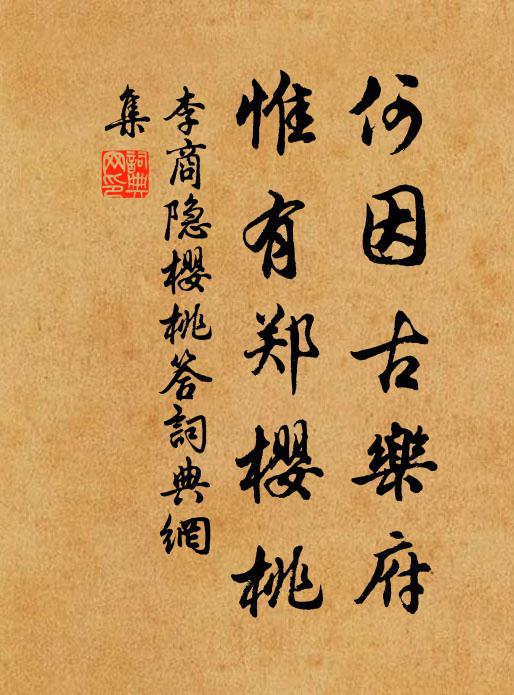 何因古樂府
惟有郑櫻桃
李商隐櫻桃答詞典網
集
詞典網印